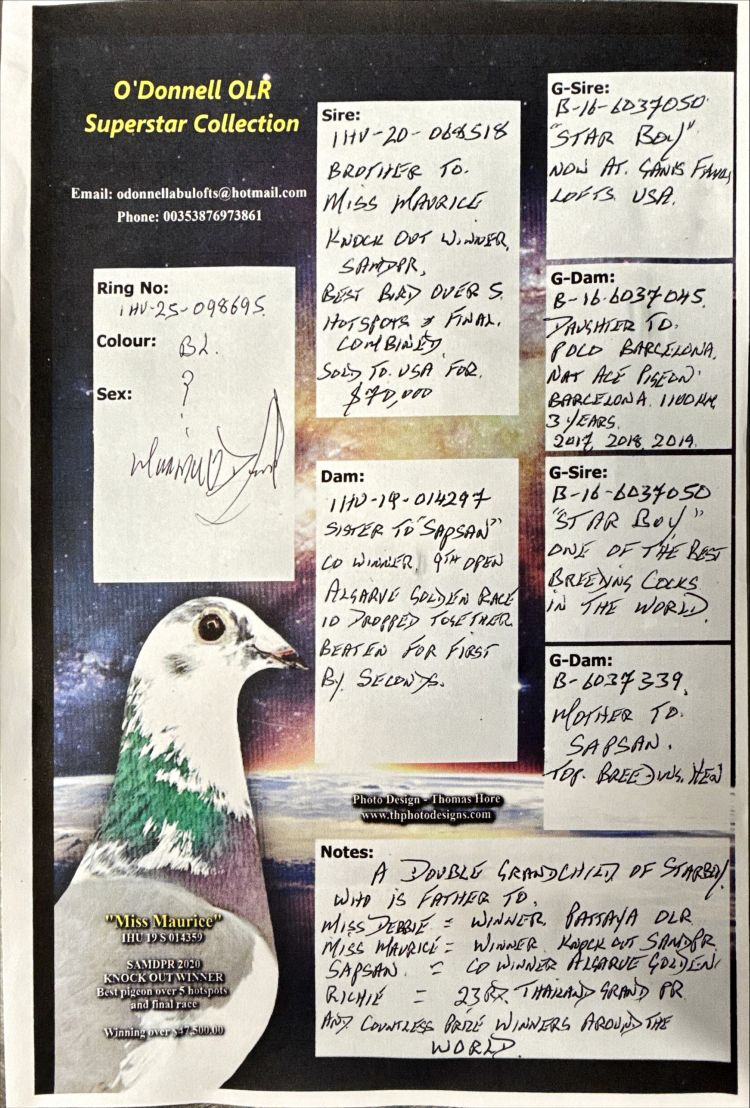 O'Donnell OLR
Superstar Collection
Email: odonnellabulofts@hotmail.com
Phone: 00353876973861
Ring No:
IHU-25-098695
Colour: BL.
Sex: ?
Sire:
IHU-20-068518
BROTHER TO.
MISS MAURICE
KNOCK OUT WINNER,
SAMDPR,
BEST BIRD OVER 5
HOTSPOTS & FINAL.
COMBINED
SOLD TO USA FOR.
$70,000
Dam:
IHU-19-014297
SISTER TO "SAPSAN"
CO WINNER, 9TH OPEN
ALGARVE GOLDEN RACE
10 DROPPED TOGETHER
BEATEN FOR FIRST
BY SECONDS.
G-Sire:
B-16-6037050
"STAR BOY"
NOW AT
LOFTS USA.
G-Dam:
B-16-6037045.
DAUGHTER TO.
POCO BARCELONA.
NAT ACE PIGEON
BARCELONA 1100KM,
3 YEARS.
2017, 2018, 2019.
G-Sire:
B-16-6037050
"STAR BOY"
ONE OF THE BEST
BREEDING COCKS
IN THE WORLD.
G-Dam:
B-6037339,
MOTHER TO.
SAPSAN.
TOP. BREEDING HEN
Photo Design - Thomas Hore
www.thphotodesigns.com
"Miss Maurice"
IHU 19 S 014359
SAMDPR 2020
KNOCK OUT WINNER
Best pigeon over 5 hotspots
and final race
Winning over $47,500.00
Notes:
A DOUBLE GRANDCHILD OF STARBOY
WHO IS FATHER TO.
MISS DEBBIE = WINNER, PATTAYA OLR
MISS MAURICE = WINNER KNOCK OUT SAMDPR
SAPSAN. = CO WINNER ALGARVE GOLDEN
RICHIE = 23RD THAILAND GRAND PR
AND COUNTLESS PRIZE WINNERS AROUND THE
WORLD.